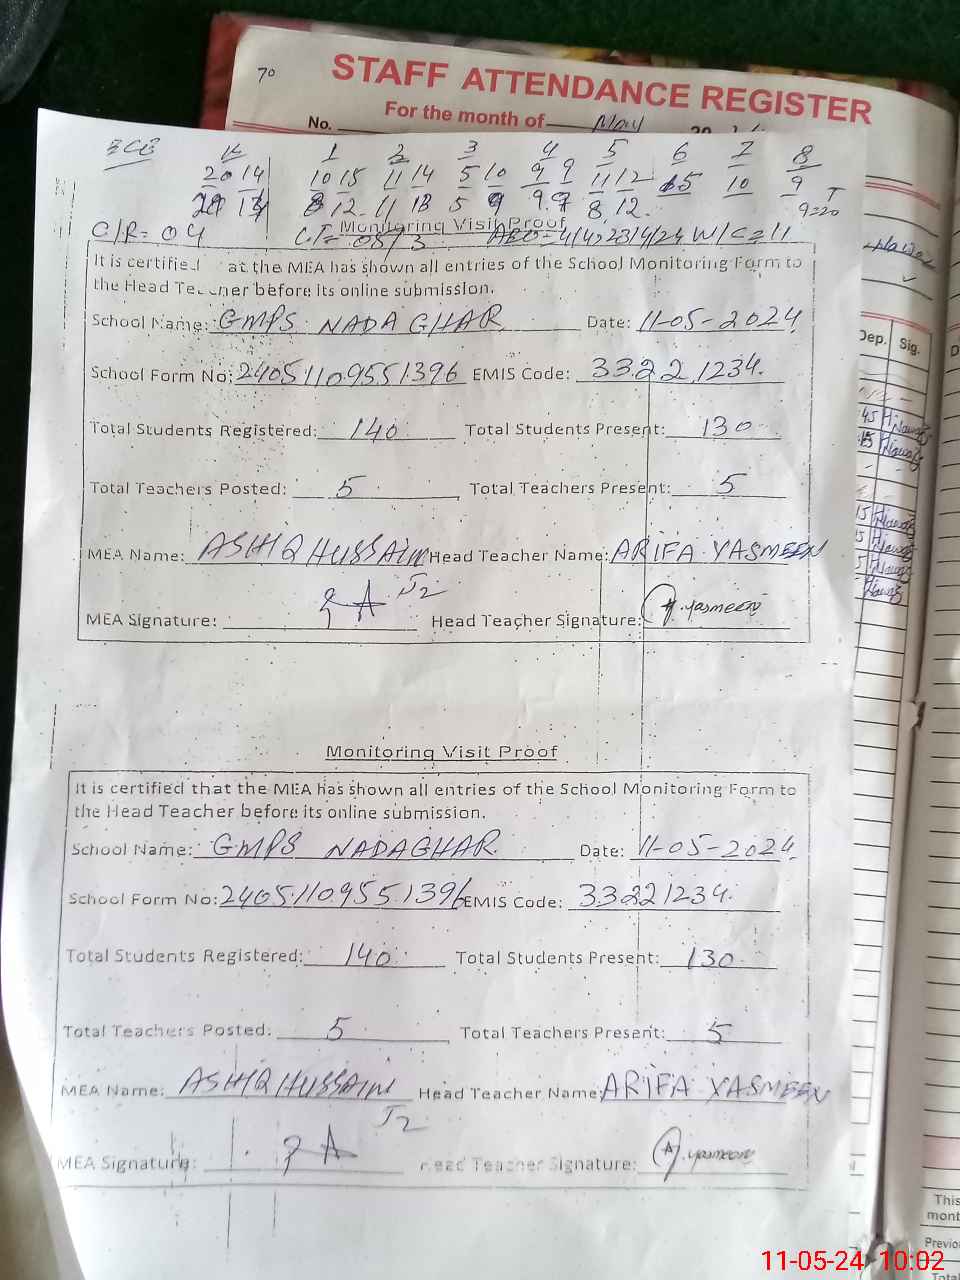 70
STAFF ATTENDANCE REGISTER
For the month of May
No.
ECE K 1 2 3 4 5 6 7 8
20 14 10 15 11 14 5 10 9 9 11 12 15 10 9
8 12 11 13 5 9 9 9 8 12 9=20
C/R= 04
Monitoring Visit Proof
It is certified at the MEA has shown all entries of the School Monitoring Form to
the Head Teacher before its online submission.
School Name: GMPS NADA GHAR Date: 11-05-2024
School Form No: 24051109551396 EMIS Code: 33221234
Total Students Registered: 140 Total Students Present: 130
Total Teachers Posted: 5 Total Teachers Present: 5
MEA Name: ASHIQ HUSSAIN Head Teacher Name: ARIFA YASMEEN
MEA Signature: Head Teacher Signature: A.yasmeen
Monitoring Visit Proof
It is certified that the MEA has shown all entries of the School Monitoring Form to
the Head Teacher before its online submission.
School Name: GMPS NADAGHAR Date: 11-05-2024
School Form No: 24051109551396 EMIS Code: 33221234
Total Students Registered: 140 Total Students Present: 130
Total Teachers Posted: 5 Total Teachers Present: 5
MEA Name: ASHIQ HUSSAIN Head Teacher Name: ARIFA YASMEEN
MEA Signature: Head Teacher Signature: A.yasmeen
Dep. Sig.
This
mont
Previo
Total
11-05-24 10:02